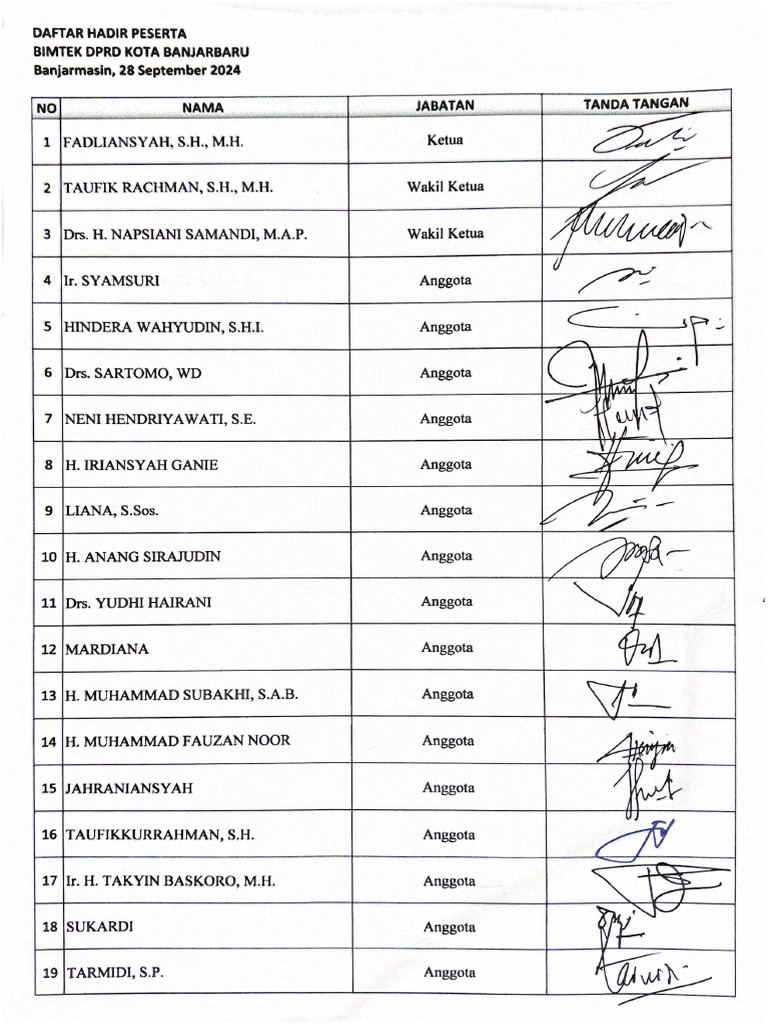 DAFTAR HADIR PESERTA
BIMTEK DPRD KOTA BANJARBARU
Banjarmasin, 28 September 2024
NO NAMA JABATAN TANDA TANGAN
1 FADLIANSYAH, S.H., M.H. Ketua
2 TAUFIK RACHMAN, S.H., M.H. Wakil Ketua
3 Drs. H. NAPSIANI SAMANDI, M.A.P. Wakil Ketua
4 Ir. SYAMSURI Anggota
5 HINDERA WAHYUDIN, S.H.I. Anggota
6 Drs. SARTOMO, WD Anggota
7 NENI HENDRIYAWATI, S.E. Anggota
8 H. IRIANSYAH GANIE Anggota
9 LIANA, S.Sos. Anggota
10 H. ANANG SIRAJUDIN Anggota
11 Drs. YUDHI HAIRANI Anggota
12 MARDIANA Anggota
13 H. MUHAMMAD SUBAKHI, S.A.B. Anggota
14 H. MUHAMMAD FAUZAN NOOR Anggota
15 JAHRANIANSYAH Anggota
16 TAUFIKKURRAHMAN, S.H. Anggota
17 Ir. H. TAKYIN BASKORO, M.H. Anggota
18 SUKARDI Anggota
19 TARMIDI, S.P. Anggota